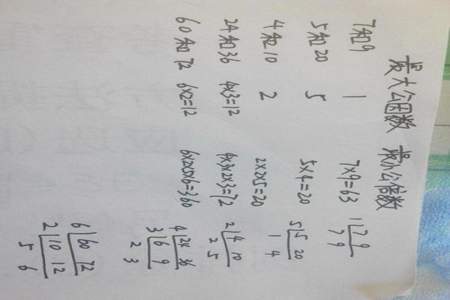 最大公因数 最小公倍数
7和9 1 7×9=63 1 7 9
7 9
5和20 5 5×4=20 5 5 20
1 4
4和10 2 2×2×5=20 2 4 10
2 5
24和36 4×3=12 4×3×2×3=72 4 24 36
3 6 9
2 3
60和72 6×2=12 6×2×5×6=360 6 60 72
2 10 12
5 6